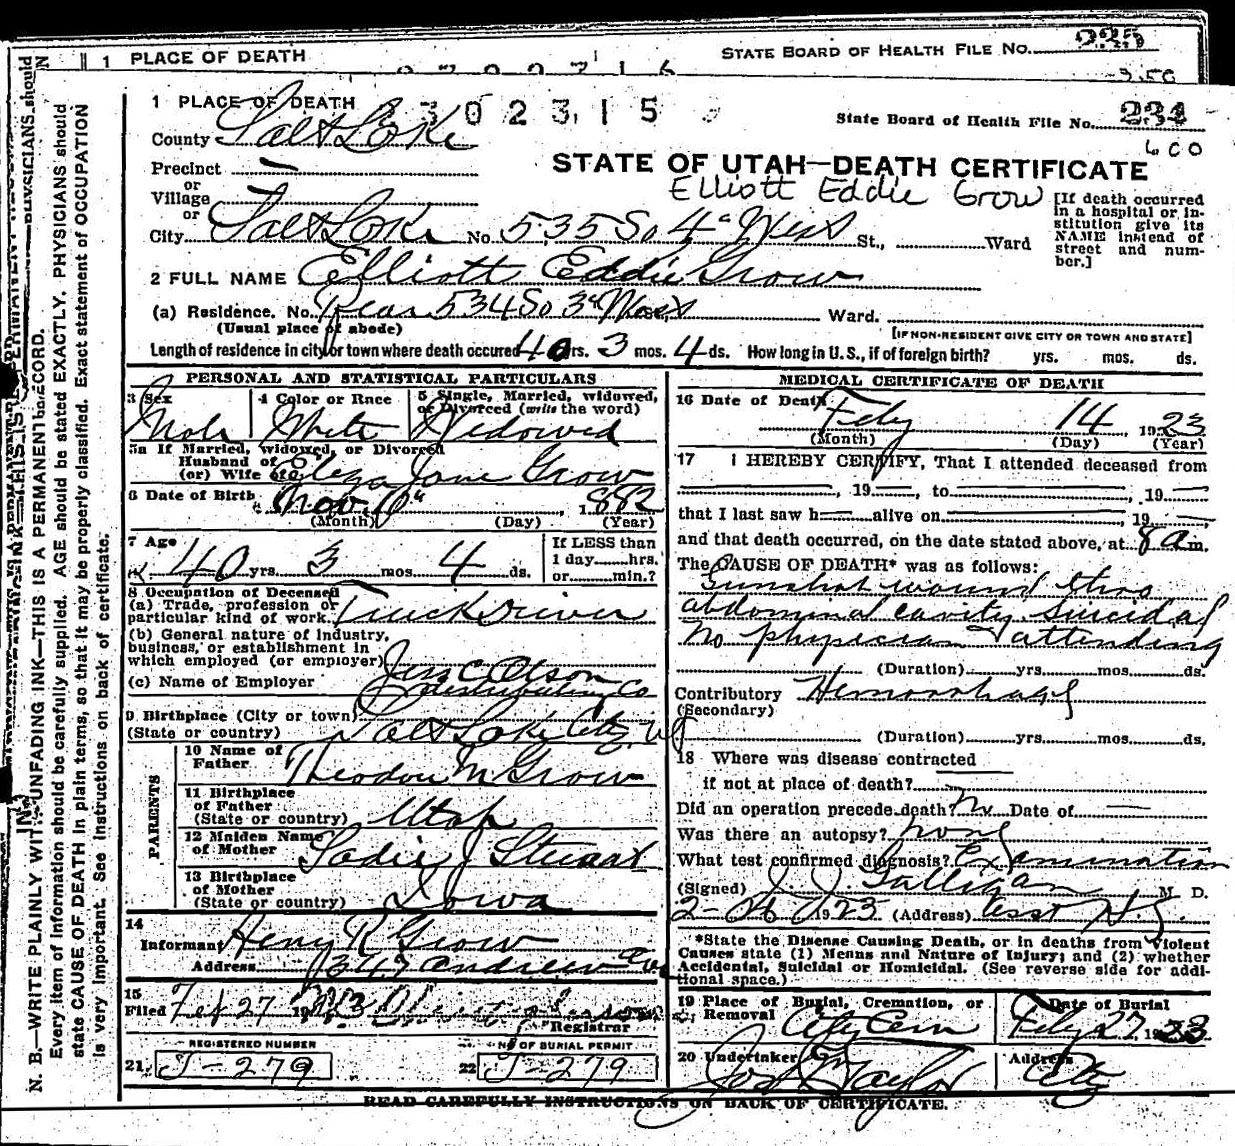 1 PLACE OF DEATH
STATE BOARD OF HEALTH FILE NO. 235
3.50
1 PLACE OF DEATH
2302315
State Board of Health File No. 234
600
County Salt Lake
STATE OF UTAH—DEATH CERTIFICATE
Precinct —
or
Village
or
Elliott Eddie Grow
[If death occurred in a hospital or institution give its NAME instead of street and number.]
City Salt Lake No. 535 So 4" West St., Ward
2 FULL NAME Elliott Eddie Grow
(a) Residence. No. Rear 534 So 3" West Ward.
(Usual place of abode)
[IF NON-RESIDENT GIVE CITY OR TOWN AND STATE]
Length of residence in city or town where death occured 40 yrs. 3 mos. 4 ds. How long in U. S., if of foreign birth? yrs. mos. ds.
PERSONAL AND STATISTICAL PARTICULARS
3 Sex
Male
4 Color or Race
White
5 Single, Married, widowed, or Divorced (write the word)
Widowed
5a If Married, widowed, or Divorced
Husband of
(or) Wife of
Eliza Jane Grow
6 Date of Birth Nov. 10" 1882
(Month) (Day) (Year)
7 Age
40 yrs. 3 mos. 4 ds.
If LESS than
1 day......hrs.
or......min.?
8 Occupation of Deceased
(a) Trade, profession or
particular kind of work. Truck Driver
(b) General nature of Industry,
business, or establishment in
which employed (or employer)
(c) Name of Employer Jens C Olson
Distributing Co
9 Birthplace (City or town)
(State or country) Salt Lake City, Ut
PARENTS
10 Name of
Father Theodore M Grow
11 Birthplace
of Father
(State or country) Utah
12 Maiden Name
of Mother Sadie J Stuart
13 Birthplace
of Mother
(State or country) Iowa
14
Informant Henry R Grow
Address 1347 Andrew Ave
15
Filed Feb 27 1923
Registrar
REGISTERED NUMBER
21. J-279
NO OF BURIAL PERMIT
22 J-279
MEDICAL CERTIFICATE OF DEATH
16 Date of Death
Feby 14 1923
(Month) (Day) (Year)
17 I HEREBY CERTIFY, That I attended deceased from
, 19 , to , 19
that I last saw h alive on , 19
and that death occurred, on the date stated above, at 8 a m.
The CAUSE OF DEATH* was as follows:
Gunshot wound thro
abdominal cavity, suicidal
No physician attending
(Duration) yrs. mos. ds.
Contributory Hemorrhage
(Secondary)
(Duration) yrs. mos. ds.
18 Where was disease contracted
if not at place of death?
Did an operation precede death? No Date of
Was there an autopsy? none
What test confirmed diagnosis? Examination
(Signed) J J Galligan M D.
1923 (Address) Asst
*State the Disease Causing Death, or in deaths from Violent Causes state (1) Means and Nature of Injury; and (2) whether Accidental, Suicidal or Homicidal. (See reverse side for additional space.)
19 Place of Burial, Cremation, or
Removal City Cem
Date of Burial
Feby 27, 1923
20 Undertaker Jos Wm Taylor
Address City
READ CAREFULLY INSTRUCTIONS ON BACK OF CERTIFICATE.
N. B.—WRITE PLAINLY WITH UNFADING INK—THIS IS A PERMANENT RECORD.
Every item of information should be carefully supplied. AGE should be stated EXACTLY. PHYSICIANS should
state CAUSE OF DEATH in plain terms, so that it may be properly classified. Exact statement of OCCUPATION
is very important. See instructions on back of certificate.